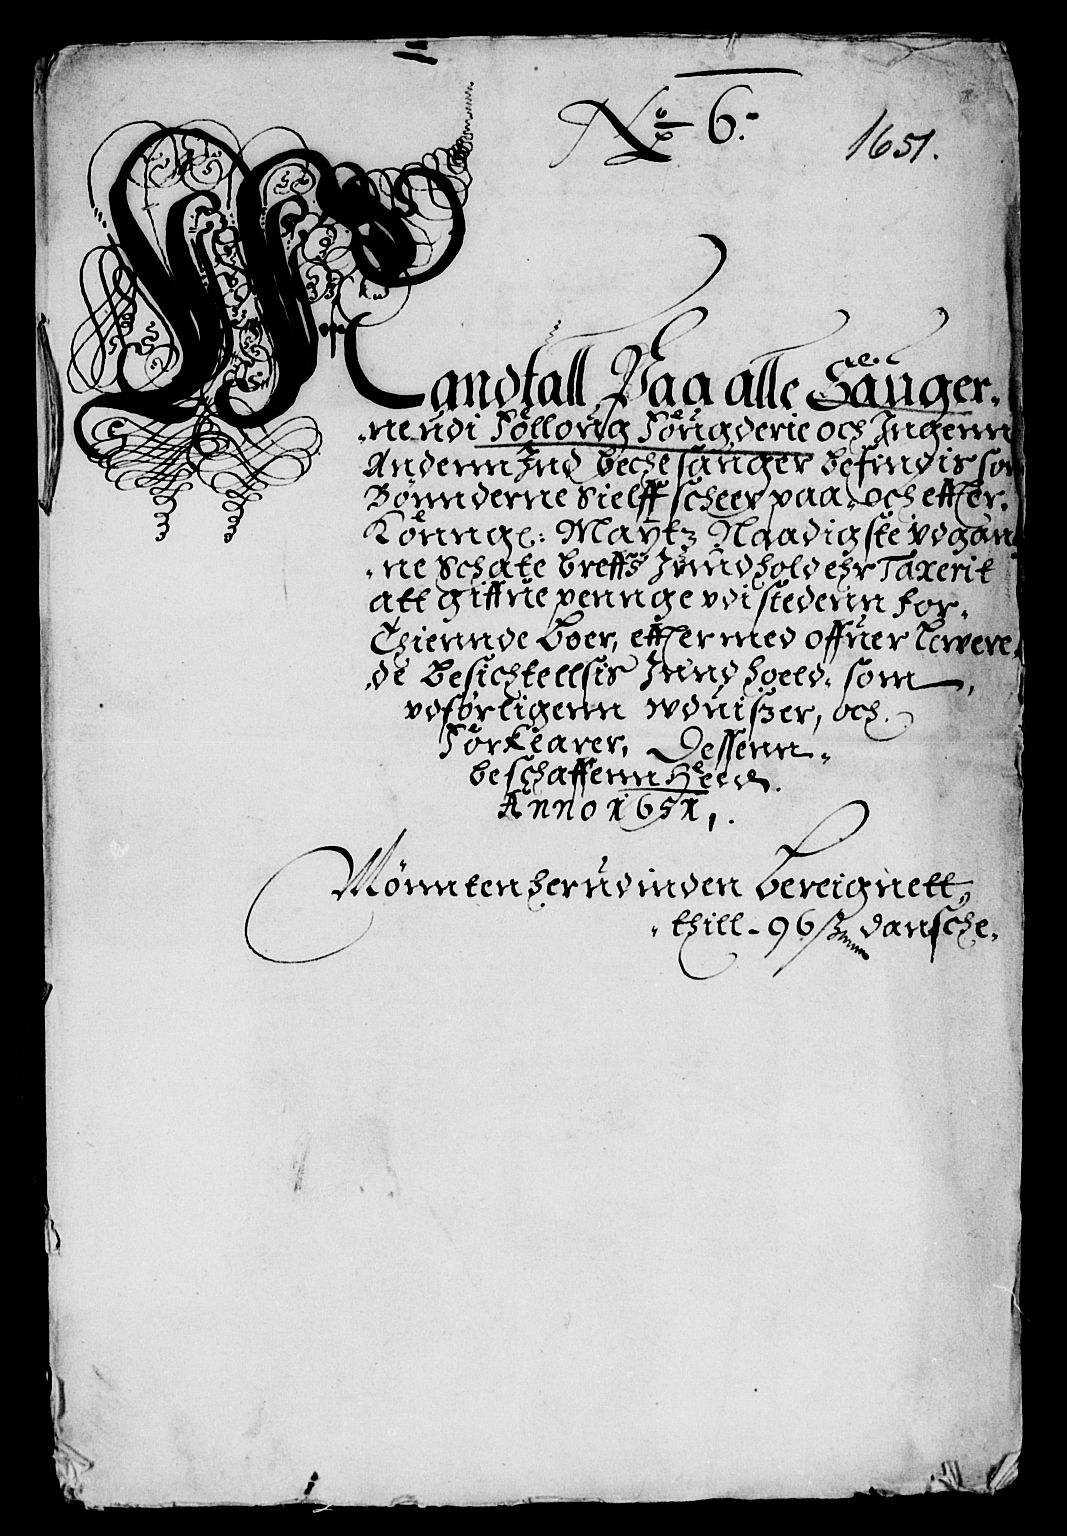 No 6.
1651.
Mandtall Paa alle Sauger,
,ne udi Folloúg Foúgderie och Ingenn
Andernn Ind beche sauger befindis som
Bønnderne Sielff scheer paa, och effter,
Kønngl: Maytz Naadigste vdgan
,ne Schate breffs Inndhold ehr Taxerit
att giffue pennge vdi stedenn for,
Thiennde Boer, effter med offuer leuere,
,de Besichtellsis Inndhoeld, som
vdførligenn wduiszer, och
Forklarer, Dessenn,
beschaffenn Heed.
Anno 1651,.
Mønnten herudinden bereignett,
, thill - 96 ß danssche,